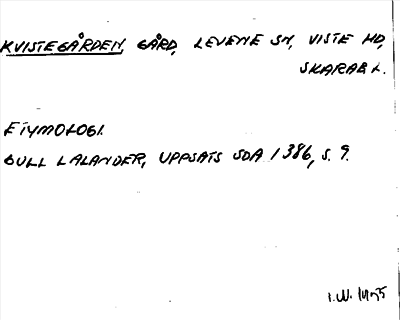 KVISTEGÅRDEN, GÅRD, LEVENE SN, VISTE HD,
SKARAB L.
ETYMOLOGI.
GULL LALANDER, UPPSATS SDA 1386, S. 9.
I.W.